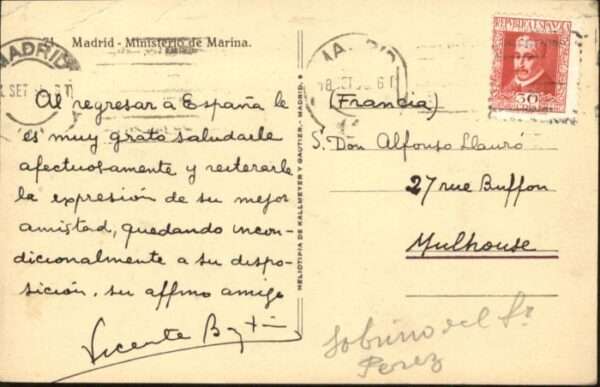 21 Madrid - Ministerio de Marina.
MADRID
SET
Al regresar á España le
es muy grato saludarle
afectuosamente y reiterarle
la expresión de su mejor
amistad, quedando incon-
dicionalmente a su dispo-
sición, su affmo amigo
Vicente
HELIOTIPIA DE KALLMEYER Y GAUTIER.-MADRID.
MADRID
REPUBLICA ESPAÑOLA
30
(Francia)
S. Don Alfonso Llauró
27 rue Buffon
Mulhouse
Sobrino del Sr
Perez